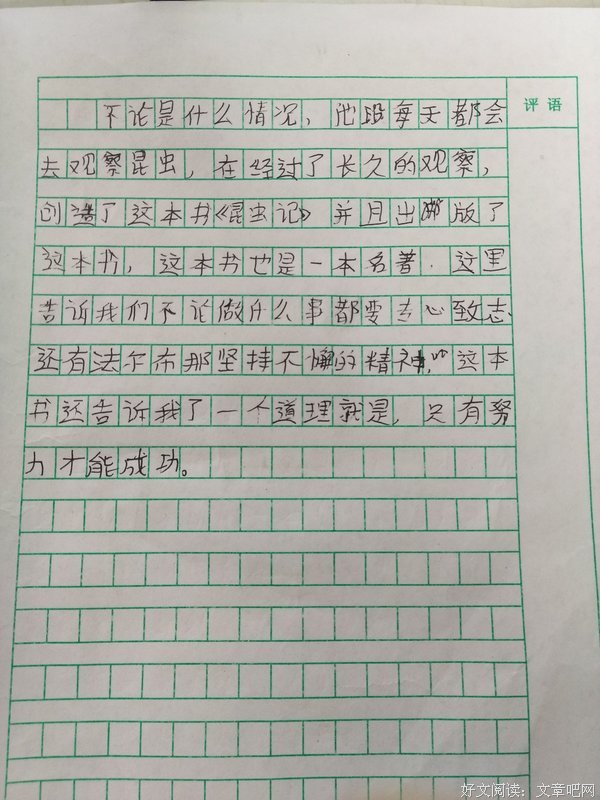 评语
不论是什么情况，他段每天都会
去观察昆虫，在经过了长久的观察，
创造了这本书《昆虫记》并且出版了
这本书，这本书也是一本名著．这里
告诉我们不论做什么事都要专心致志
还有法尔布那坚持不懈的精神，这本
书还告诉我了一个道理就是，只有努
力才能成功。
好文阅读：文章吧网